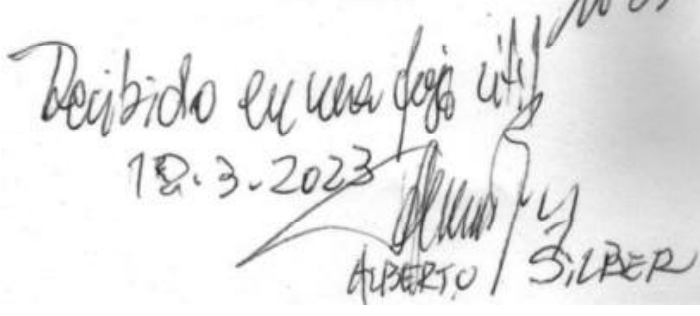 Recibido en una foja útil
18.3.2023
ALBERTO SILBER